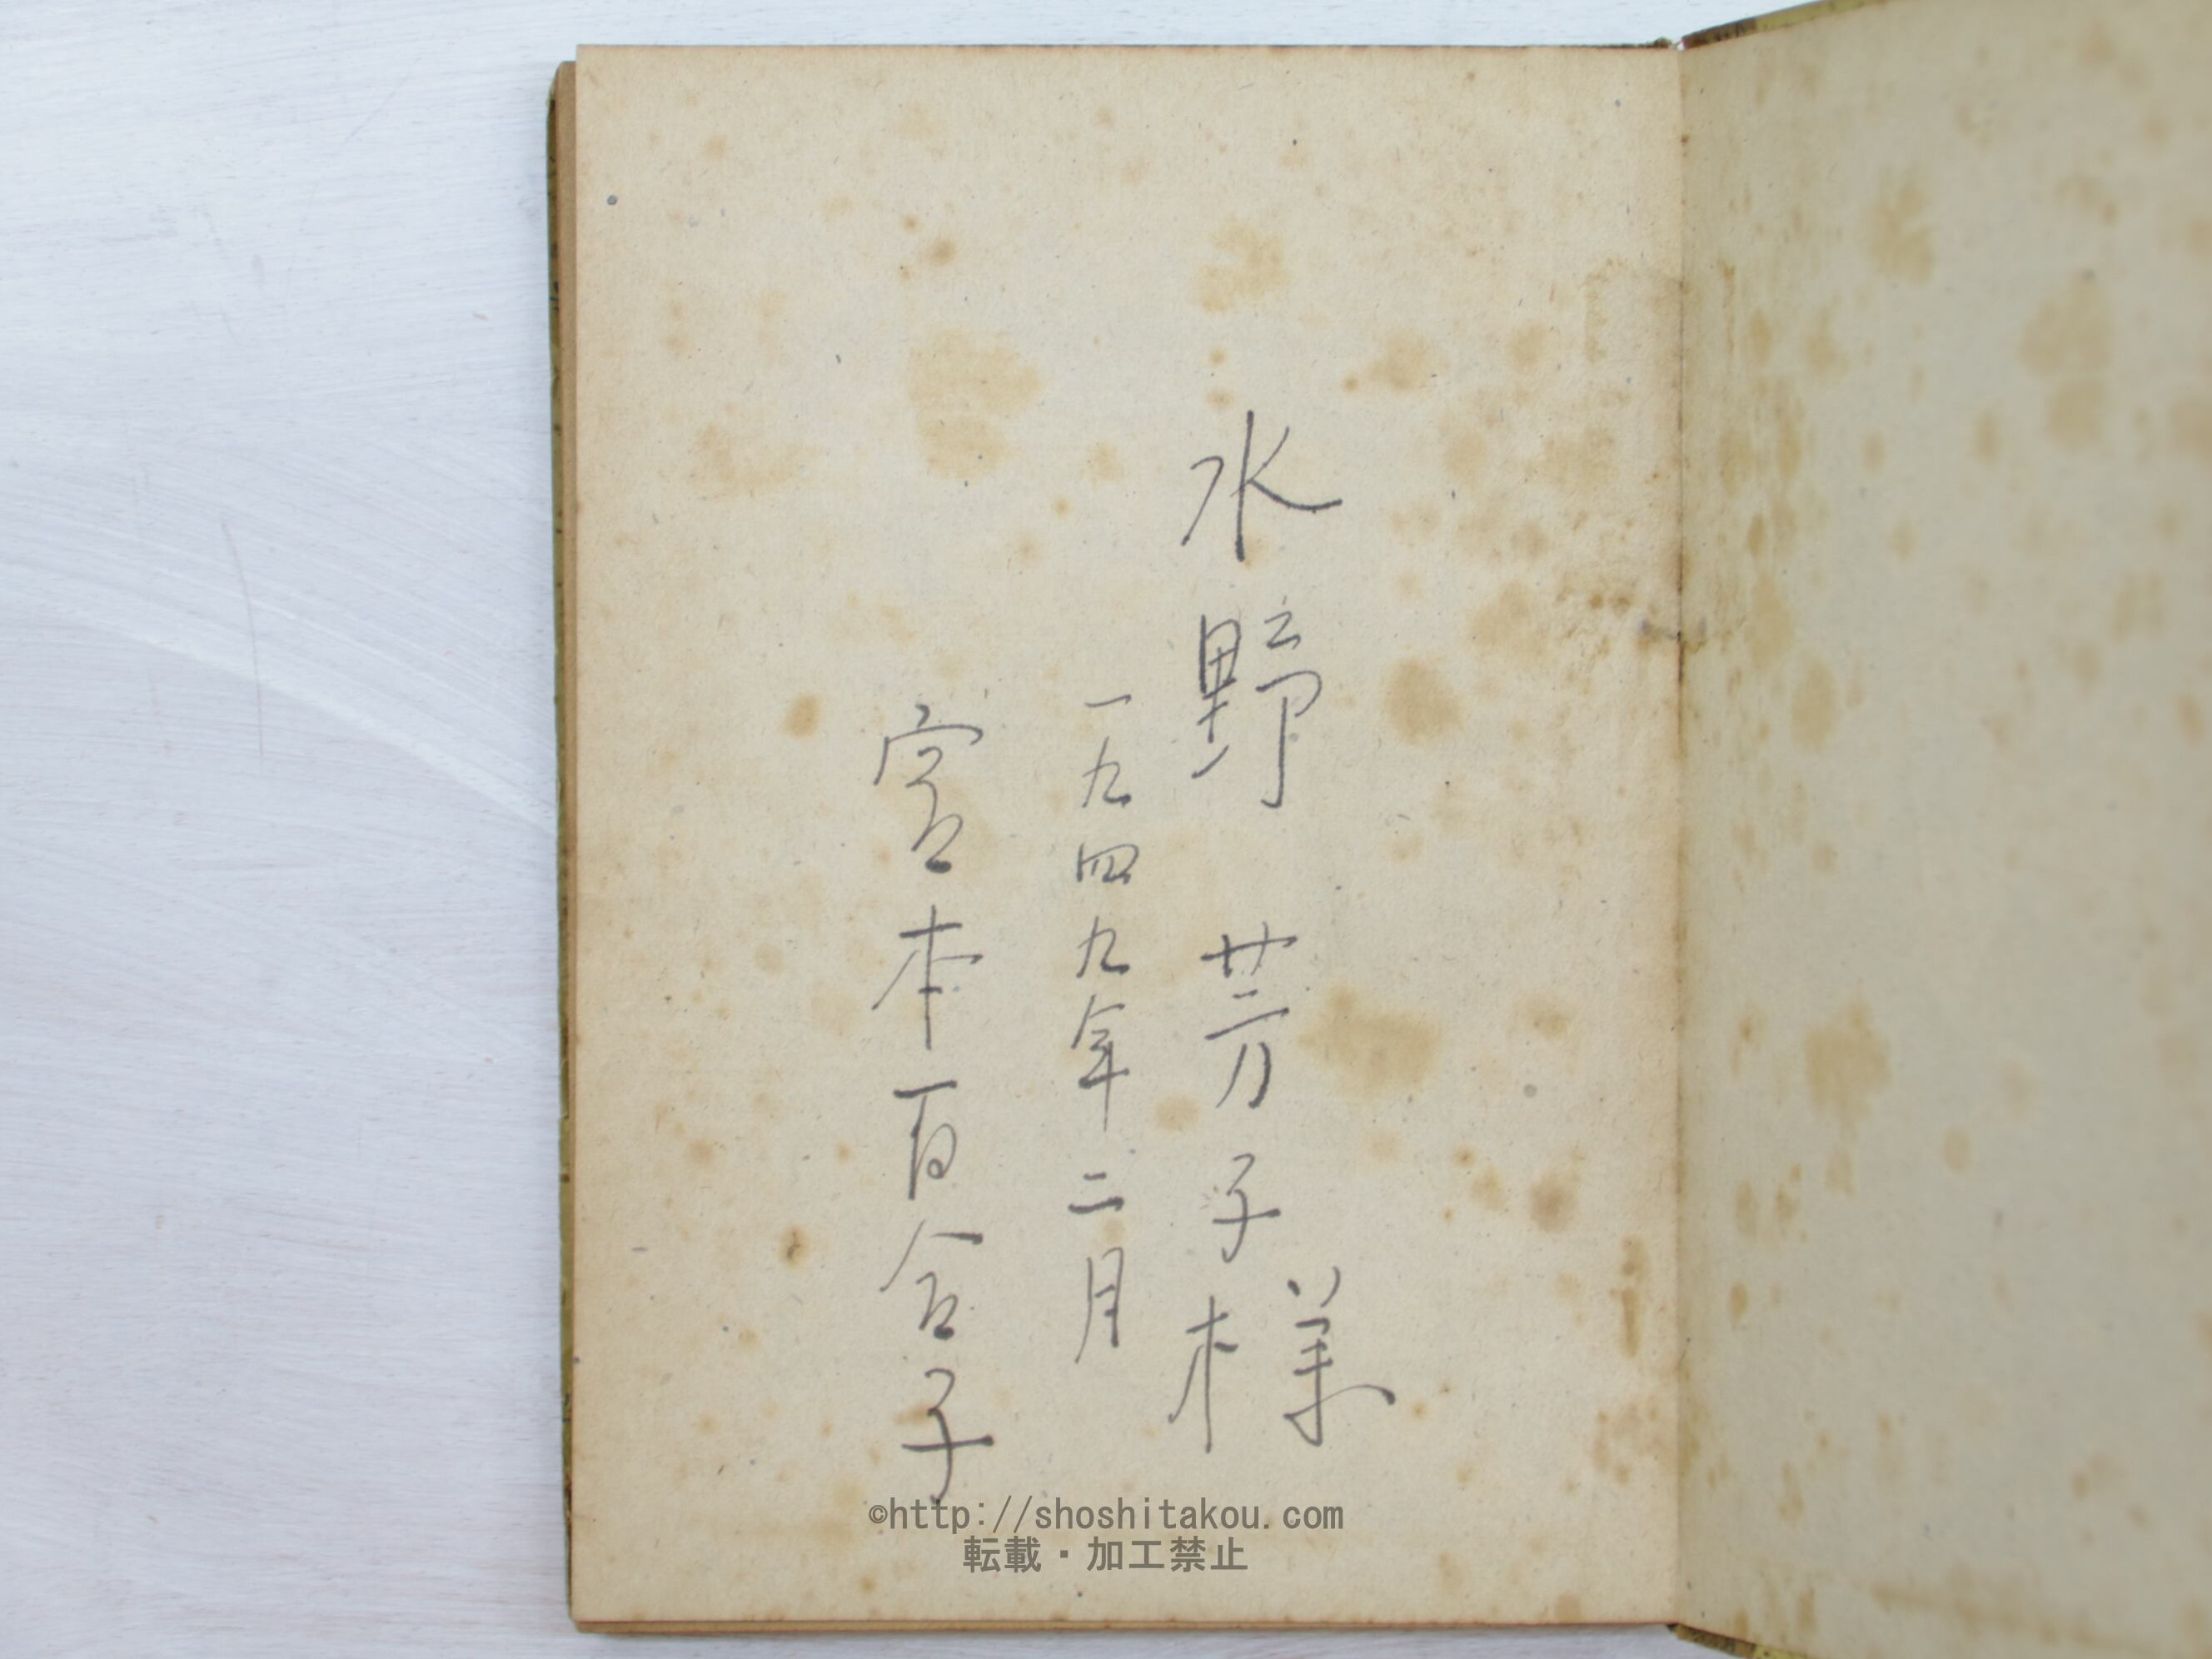 水野芳子様
一九四九年二月
宮本百合子
©http://shoshitakou.com
転載・加工禁止